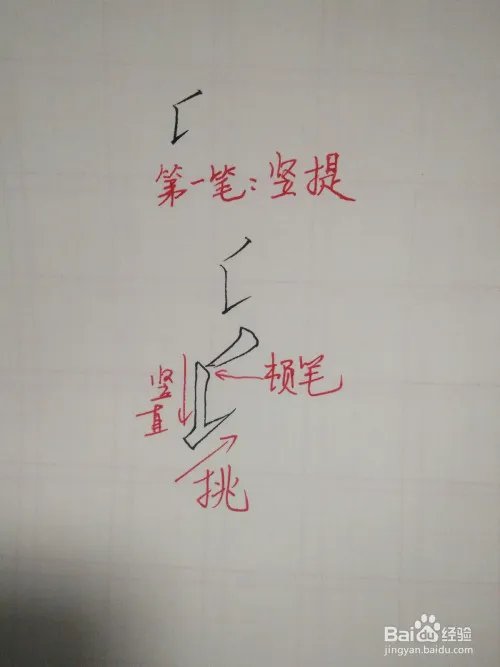 第一笔：竖提
竖直
顿笔
挑
Baidu经验
jingyan.baidu.com